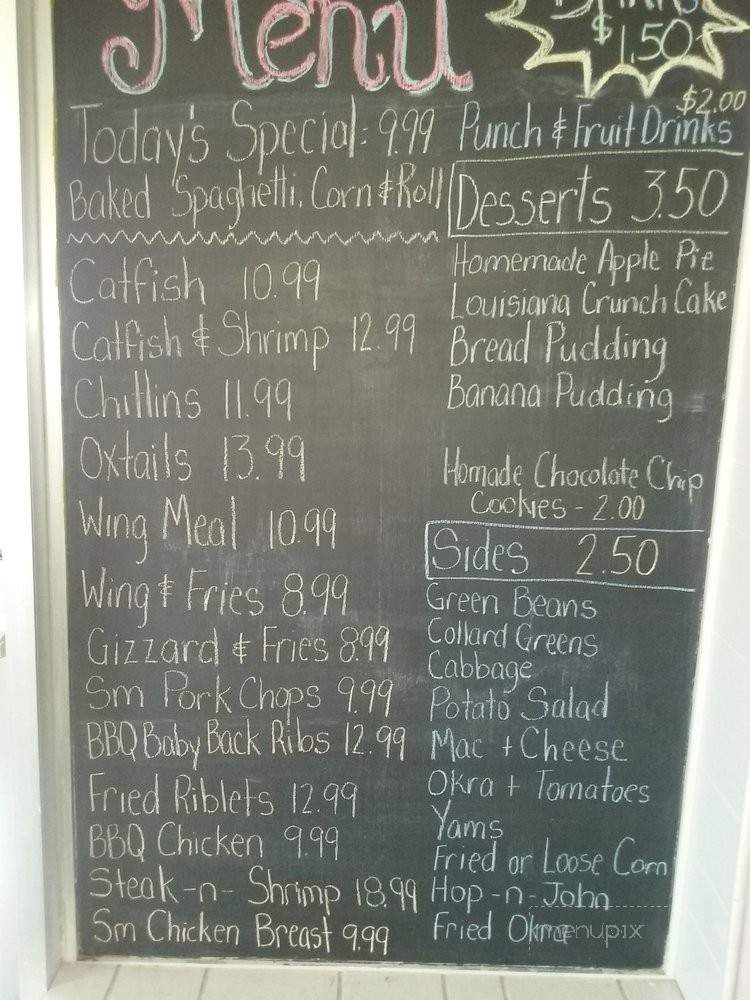 Menu
$1.50
Today's Special: 9.99
Baked Spaghetti, Corn & Roll
Catfish 10.99
Catfish & Shrimp 12.99
Chitlins 11.99
Oxtails 13.99
Wing Meal 10.99
Wing & Fries 8.99
Gizzard & Fries 8.99
Sm Pork Chops 9.99
BBQ Baby Back Ribs 12.99
Fried Riblets 12.99
BBQ Chicken 9.99
Steak-n-Shrimp 18.99
Sm Chicken Breast 9.99
$2.00
Punch & Fruit Drinks
Desserts 3.50
Homemade Apple Pie
Louisiana Crunch Cake
Bread Pudding
Banana Pudding
Homade Chocolate Chip
Cookies - 2.00
Sides 2.50
Green Beans
Collard Greens
Cabbage
Potato Salad
Mac + Cheese
Okra + Tomatoes
Yams
Fried or Loose Corn
Hop-n-John
Fried Okra
menupix